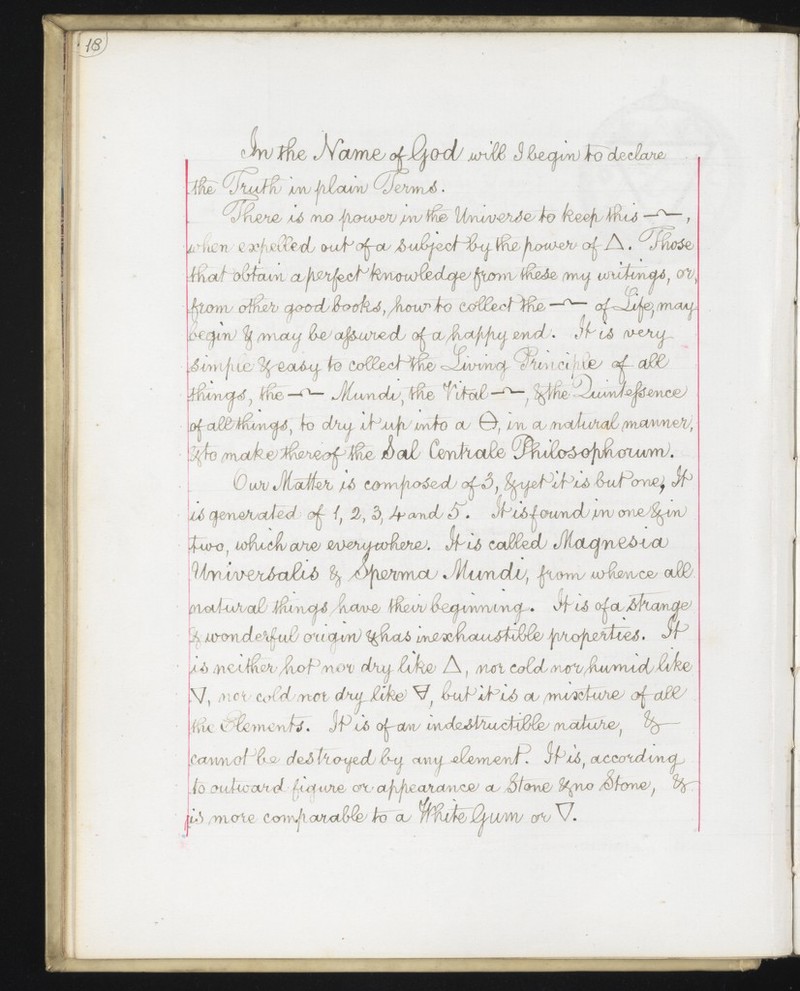 18
In the Name of God will I begin to declare
the Truth in plain Terms.
There is no power in the Universe to keep this —~—,
when expelled out of a subject by the power of △. Those
that obtain a perfect knowledge from these my writings, or,
from other good books, how to collect the —~— of Life, may
begin & may be aſsured of a happy end. It is very
simple & easy to collect the Living Principle of all
things, the —~— Mundi, the Vital —~—, & the Quinteſsence
of all things, to dry it up into a ⊖, in a natural manner,
& to make thereof the Sal Centrale Philosophorum.
Our Matter is composed of 3, & yet it is but one, It
is generated of 1, 2, 3, 4 and 5. It is found in one & in
two, which are everywhere. It is called Magnesia
Universalis & Sperma Mundi, from whence all
natural things have their beginning. It is of a strange
& wonderful origin & has inexhaustible properties. It
is neither hot nor dry like △, nor cold nor humid like
▽, nor cold nor dry like 🜃, but it is a mixture of all
the Elements. It is of an indestructible nature, &
cannot be destroyed by any element. It is, according
to outward figure or appearance a Stone & no Stone, &
is more comparable to a White Gum or ▽.